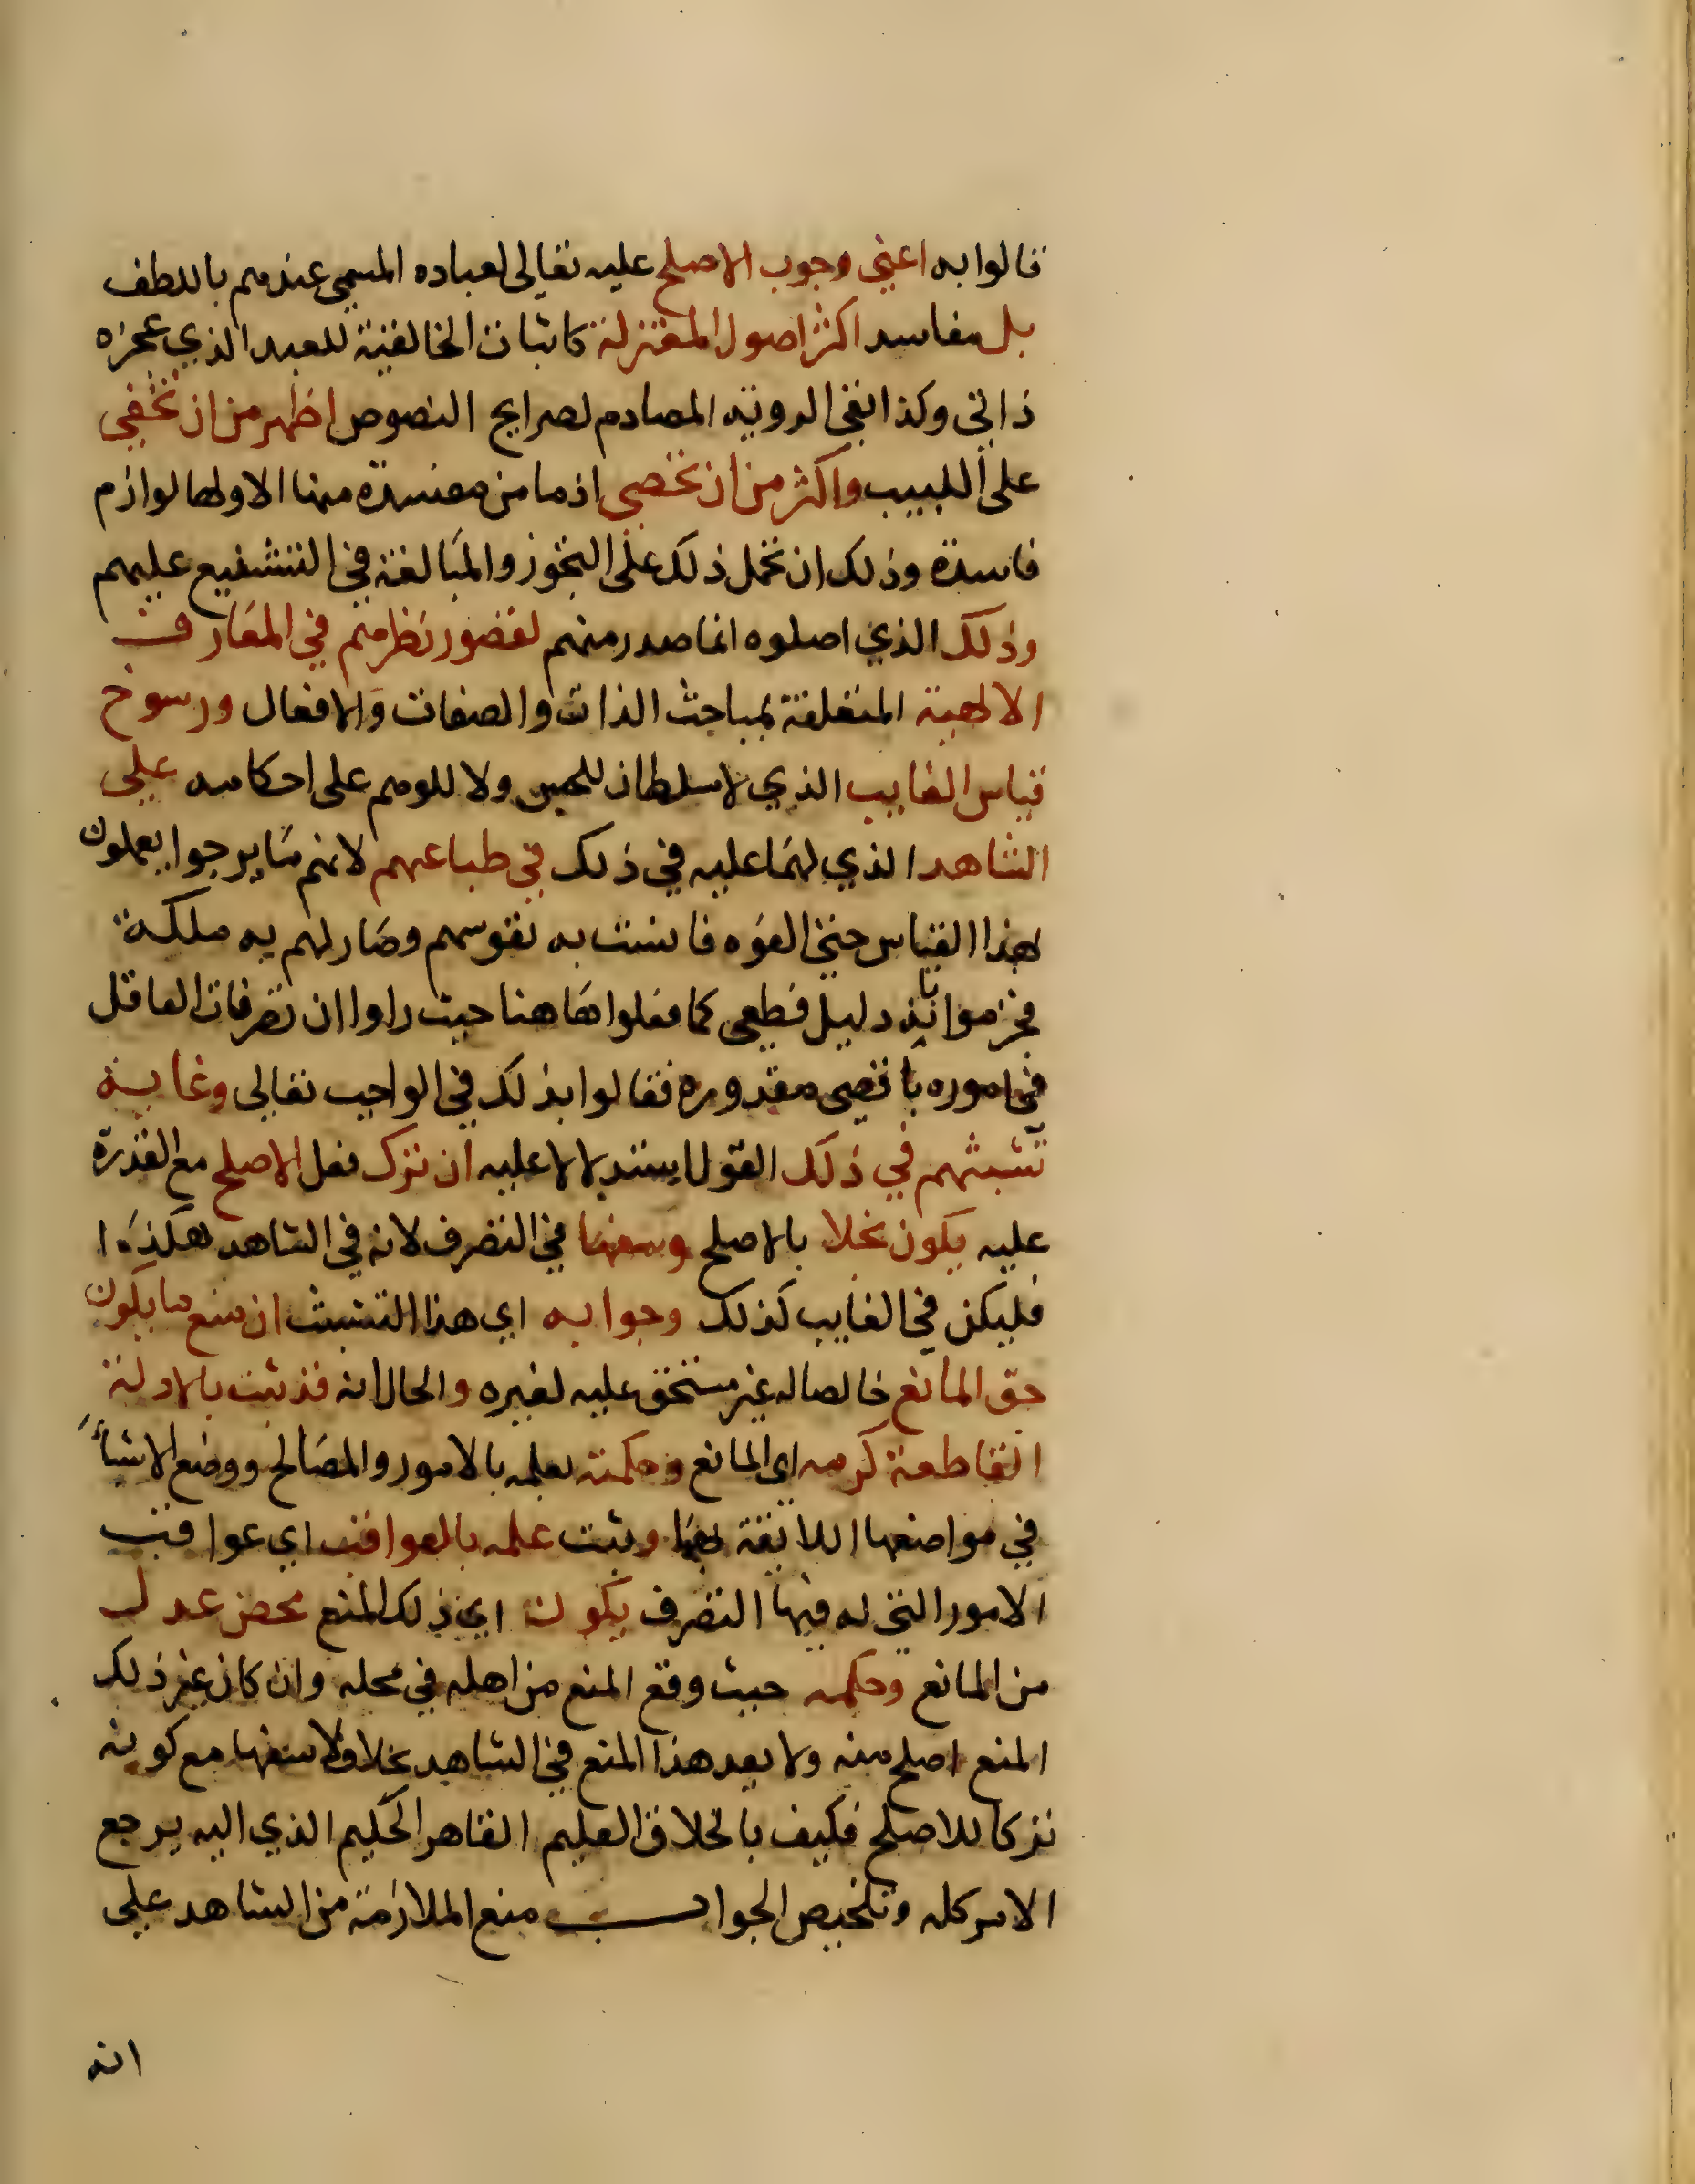 قالوا به اعني وجوب الاصلح عليه تعالى لعباده المسمى عندهم باللطف
بل مفاسد اكثر اصول المعتزلة كاثبات الخالقية للعبد الذي عجزه
ذاتي وكذا نفي الروية المصادم لصرايح النصوص اظهر من ان تخفى
على اللبيب واكثر من ان تحصى اذ ما من مفسدة منها الا ولها لوازم
فاسدة وذلك ان تحمل ذلك على التجوز والمبالغة في التشنيع عليهم
وذلك الذي اصلوه انما صدر منهم لقصور نظرهم في المعارف
الالهية المتعلقة بمباحث الذات والصفات والافعال ورسوخ
قياس الغايب الذي لا سلطان للحس ولا للوهم على احكامه على
الشاهد الذي لهما عليه في ذلك في طباعهم لانهم ما برحوا يعملون
بهذا القياس حتى الفوه فانست به نفوسهم وصار لهم به ملكة
فجزموا بانه دليل قطعي كما فعلوا هاهنا حيث راوا ان تصرفات العاقل
في اموره باقصى مقدوره فقالوا بذلك في الواجب تعالى وغاية
تشبثهم في ذلك القول استدلالا عليه ان ترك فعل الاصلح مع القدرة
عليه يكون بخلا بالاصلح وسفها في التصرف لانه في الشاهد هكذا
فليكن في الغايب كذلك وجوابه اي هذا التشبث ان منع ما يكون
حق المانع خالصا له غير مستحق عليه لغيره والحال انه قد ثبت بالادلة
القاطعة كرمه اي المانع وحكمته بعلمه بالامور والمصالح ووضع الاشيأ
في مواضعها اللائقة بها وثبت علمه بالعواقب اي عواقب
الامور التي له فيها التصرف يكون اي ذلك المنع محض عدل
من المانع وحكمه حيث وقع المنع من اهله في محله وان كان غير ذلك
المنع اصلح منه ولا يعد هذا المنع في الشاهد بخلا ولا سفها مع كونه
تركا للاصلح فكيف بالخلاق العليم القاهر الحكيم الذي اليه يرجع
الامر كله وتلخيص الجواب منع الملازمة من الشاهد على
انه